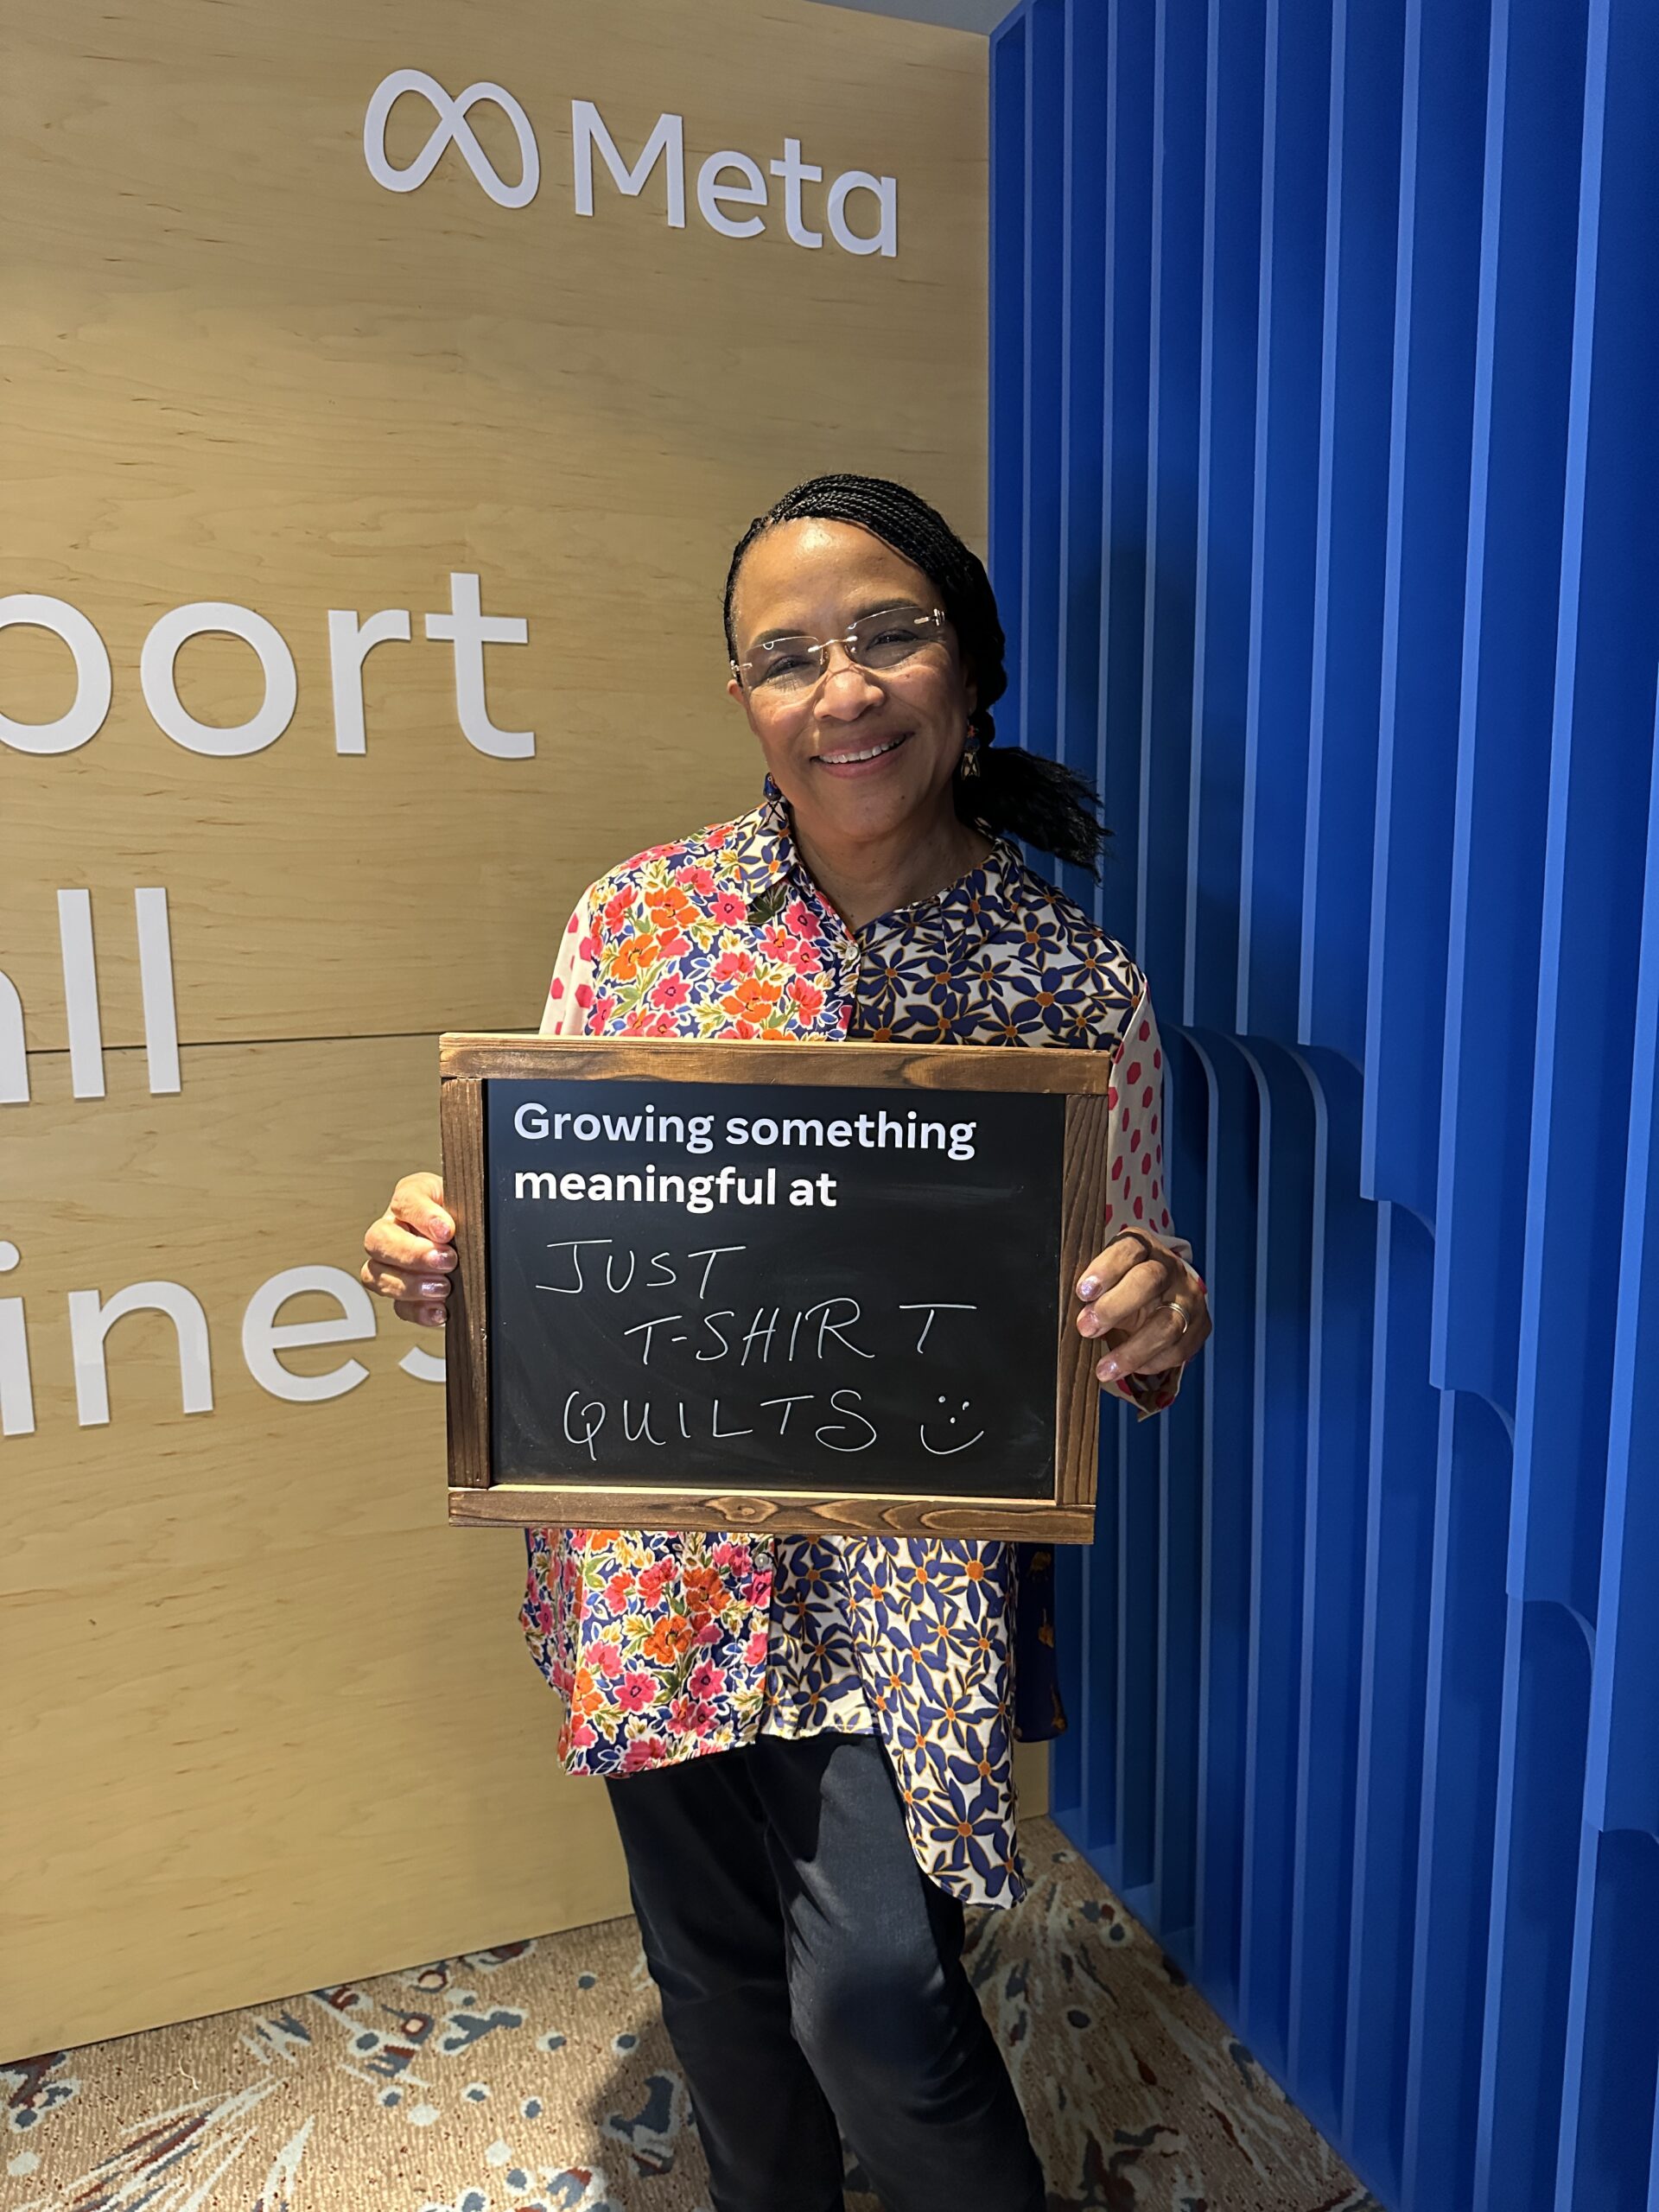 Meta
port
all
ines
Growing something
meaningful at
JUST
T-SHIRT
QUILTS